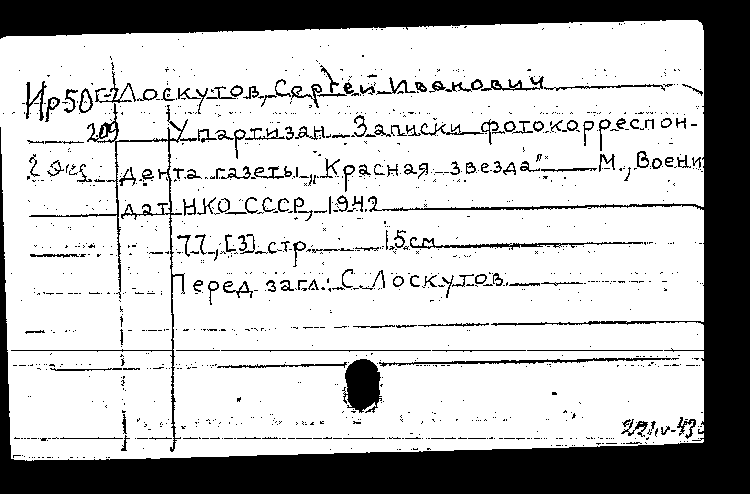 Ир50 Г-7 Лоскутов, Сергей Иванович
209 У партизан. Записки фотокорреспон-
2 экз дента газеты „Красная звезда“. М., Воени
дат НКО СССР, 1942
77, [3] стр. 15см
Перед загл.: С. Лоскутов.
22/IV-43